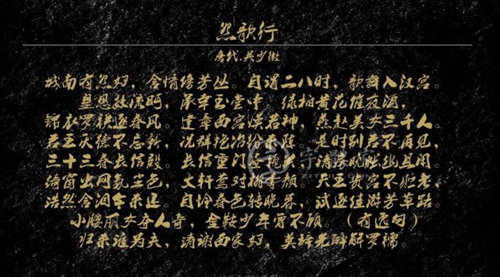 怨歌行
唐代.吴少微
城南有怨妇，含情傍芳丛。自谓二八时，歌舞入汉宫。
皇恩数流眄，承幸玉堂中。绿柏黄花催夜酒，
锦衣罗袂逐春风。建章西宫焕若神，燕赵美女三千人。
君王厌德不忘新，况群艳冶纷来陈。是时别君不再见，
三十三春长信殿。长信重门昼掩关，清房晓帐幽且闲。
绮窗虫网氛尘色，文轩莺对桃李颜。天王贵宫不贮老，
浩然泪陨今来还。自怜春色转晚暮，试逐佳游芳草路。
小腰丽女夺人奇，金鞍少年曾不顾 （有逸句）
归来谁为夫，请谢西家妇，莫辞先醉解罗襦。